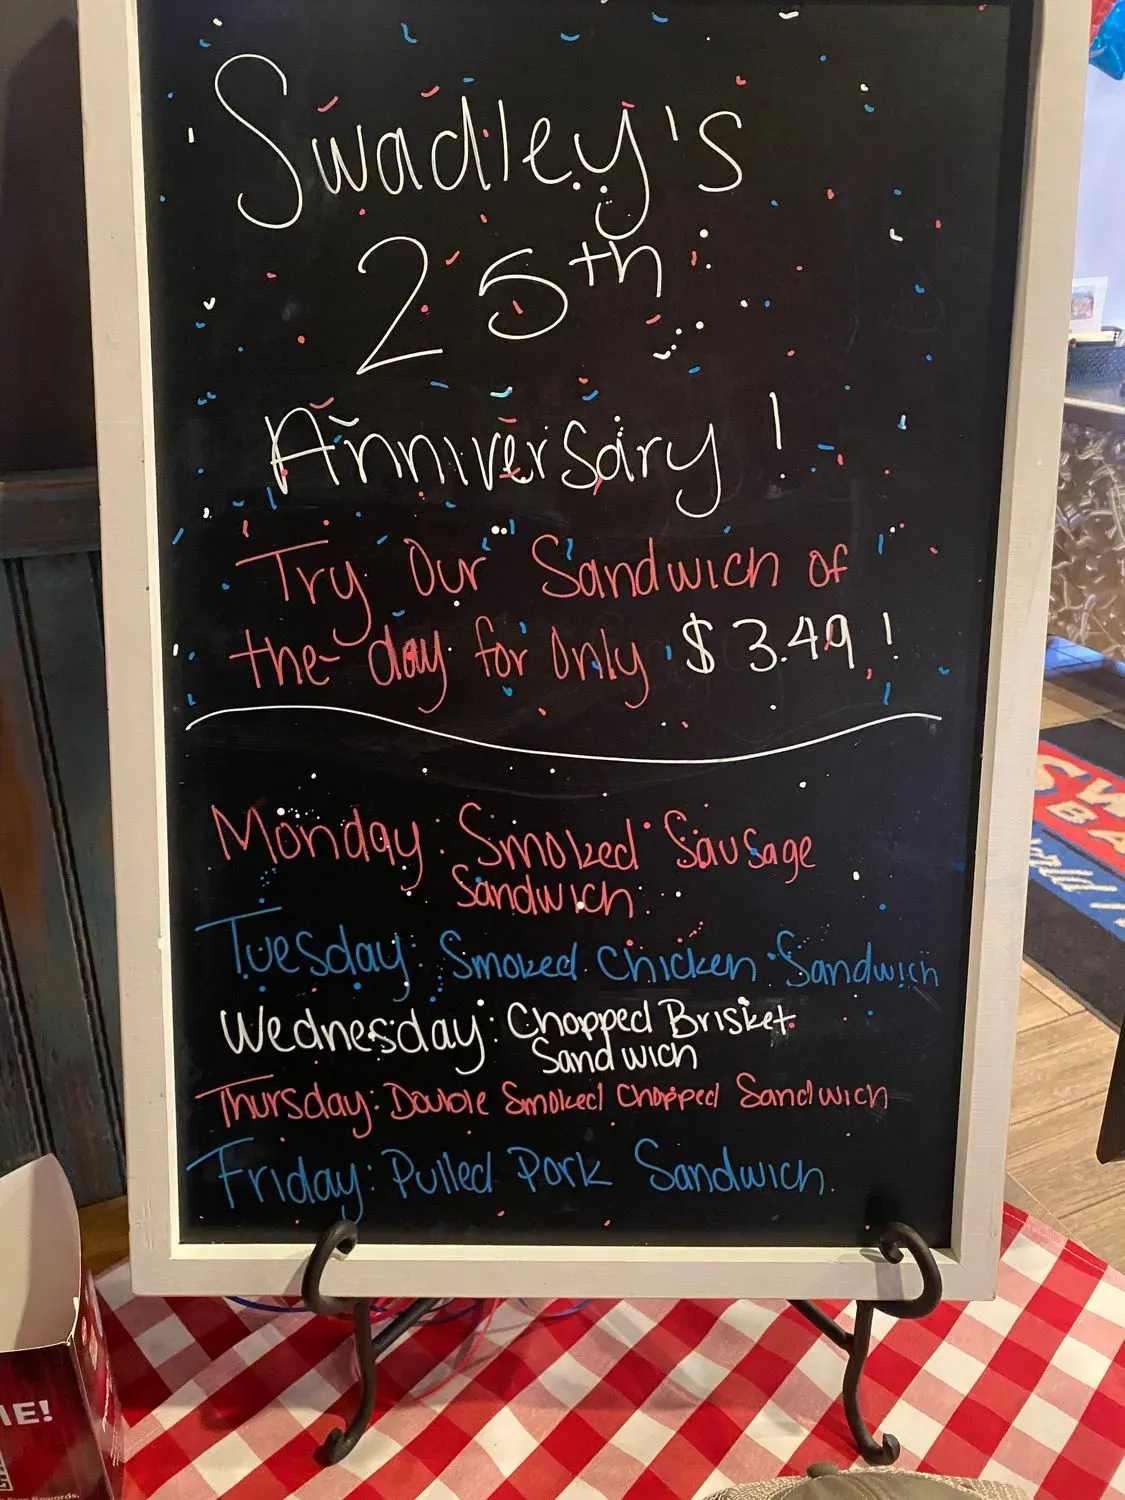 Swadley's
25th
Anniversary!
Try Our Sandwich of
the day for Only $3.49!
Monday: Smoked Sausage
Sandwich
Tuesday: Smoked Chicken Sandwich
Wednesday: Chopped Brisket
Sandwich
Thursday: Double Smoked Chopped Sandwich
Friday: Pulled Pork Sandwich.